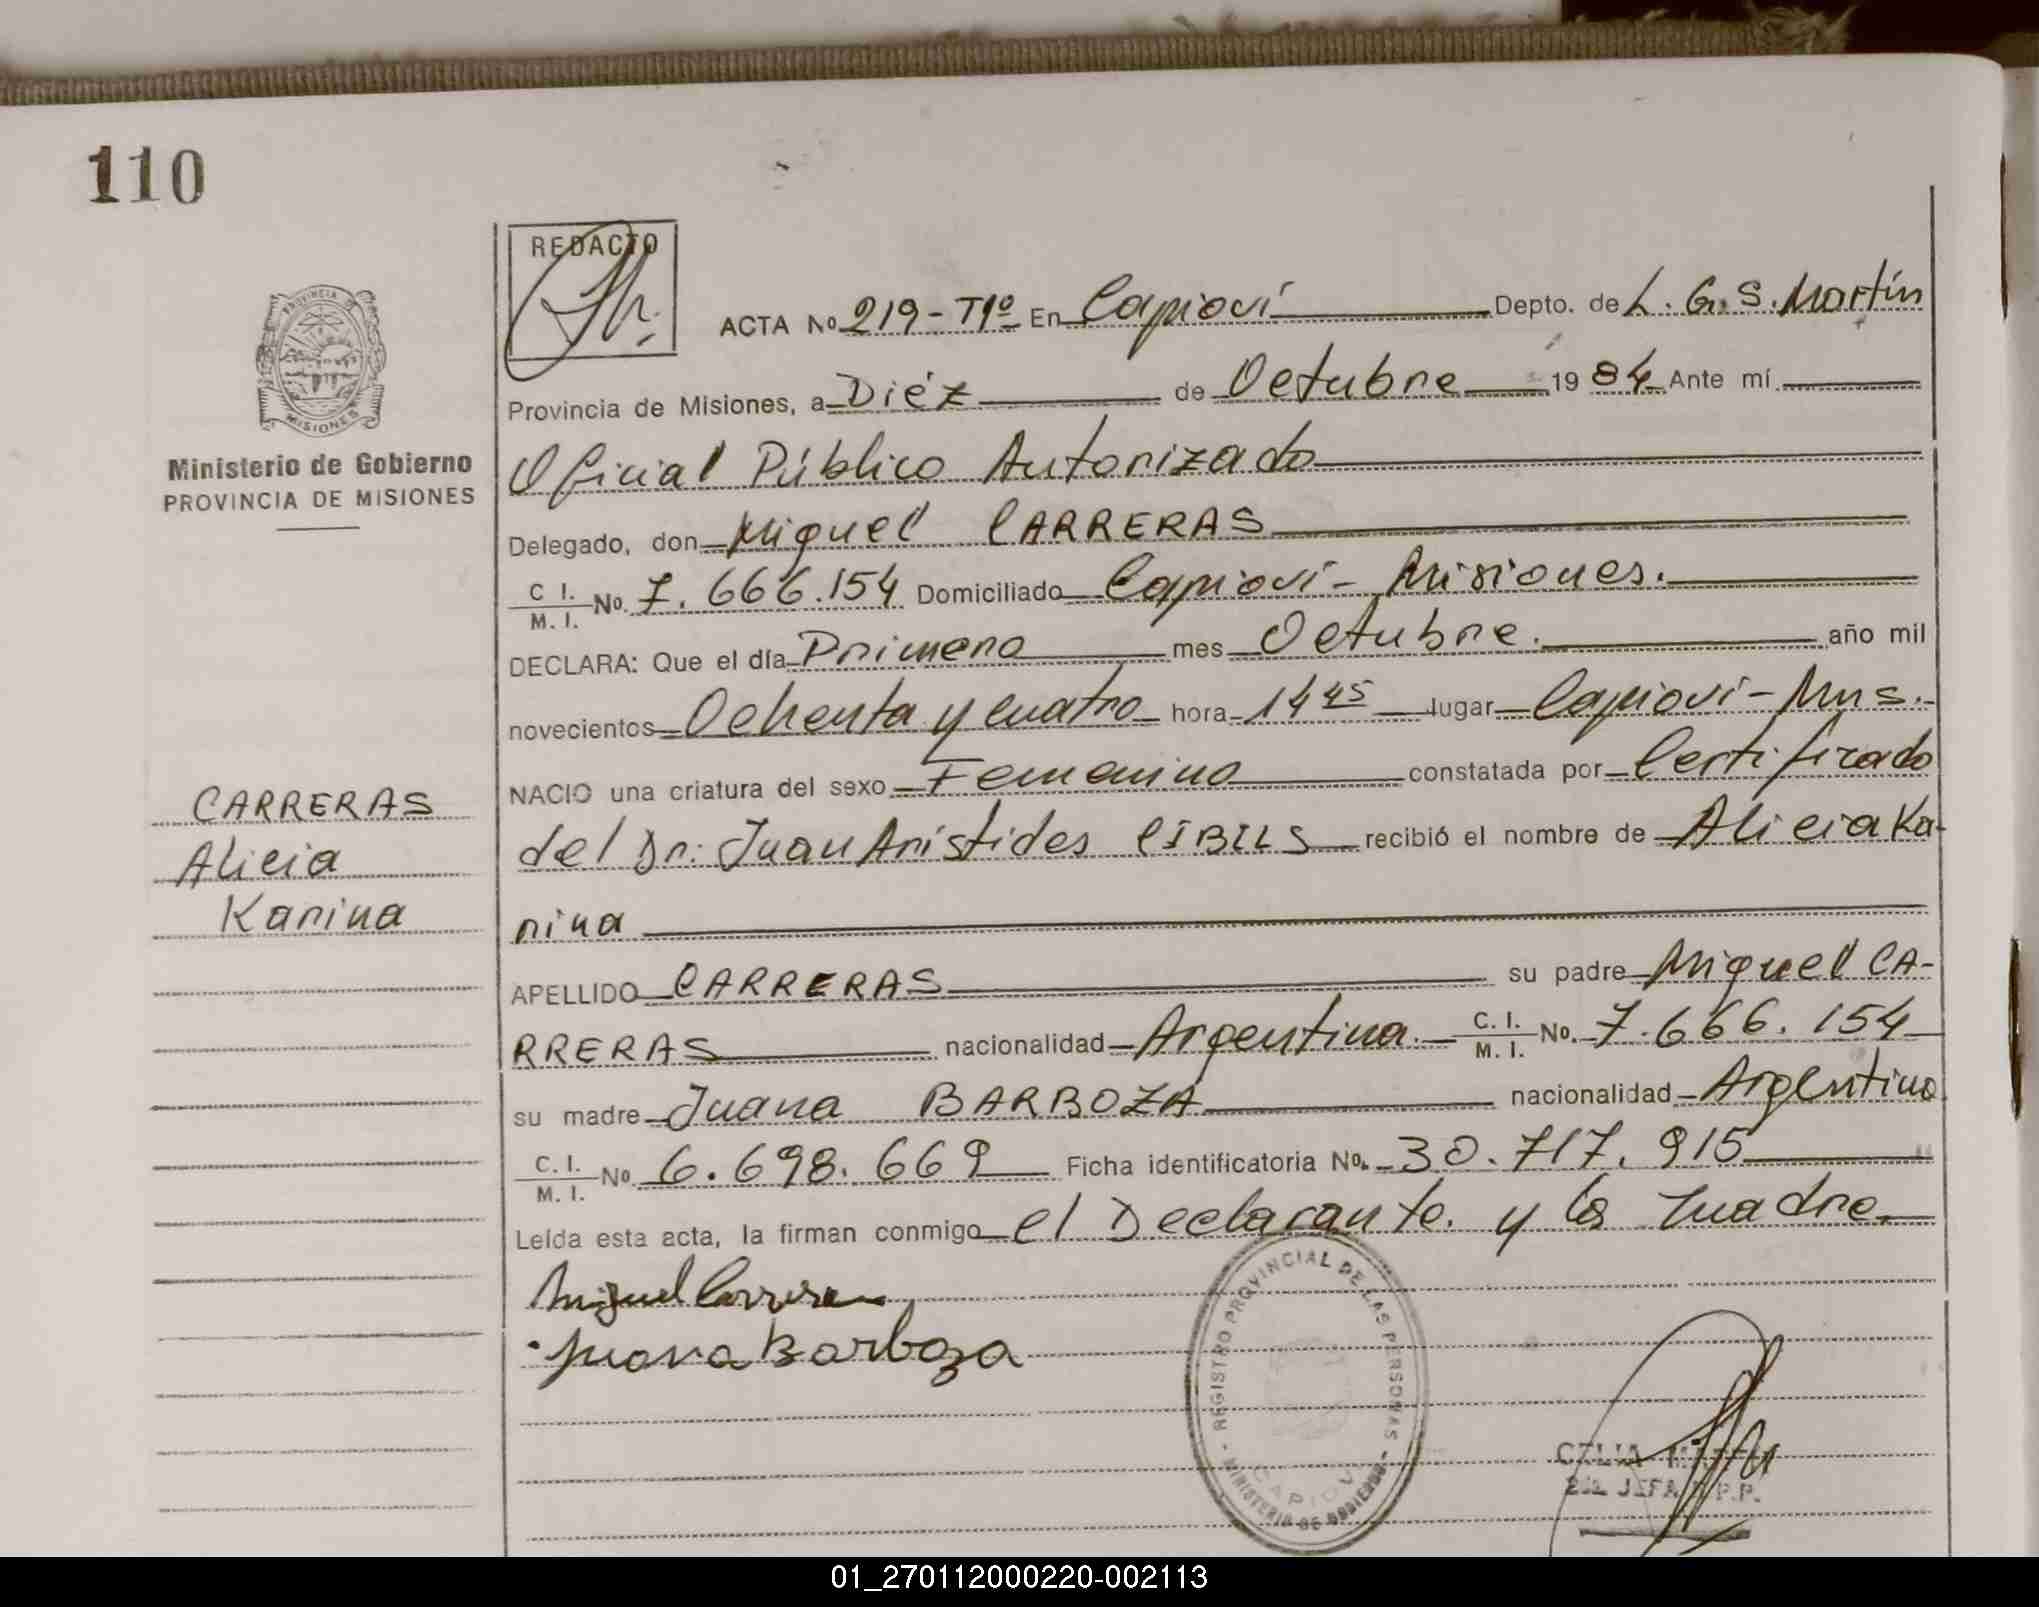 110
REDACTO
PROVINCIA DE
MISIONES
Ministerio de Gobierno
PROVINCIA DE MISIONES
ACTA No 219-T1º En Capioví Depto. de L. G. S. Martín
Provincia de Misiones, a Diéz de Octubre 1984 Ante mí
Oficial Público Autorizado
Delegado, don Miguel CARRERAS
C. I. / M. I. No. 7.666.154 Domiciliado Capioví - Misiones.
DECLARA: Que el día Primero mes Octubre. año mil
novecientos Ochenta y cuatro hora 14 45 lugar Capioví - Mns.
NACIO una criatura del sexo Femenino constatada por Certificado
del Dr: Juan Arístides CIBILS recibió el nombre de Alicia Ka-
rina
APELLIDO CARRERAS su padre Miguel CA-
RRERAS nacionalidad Argentina. C. I. / M. I. No. 7.666.154
su madre Juana BARBOZA nacionalidad Argentina
C. I. / M. I. No. 6.698.669 Ficha identificatoria No. 30.717.915
Leída esta acta, la firman conmigo el Declarante. y la madre
CARRERAS
Alicia
Karina
Miguel Carreras
Juana Barboza
REGISTRO PROVINCIAL DE LAS PERSONAS
CAPIOVI
MINISTERIO DE GOBIERNO
CELIA
JEFA R.P.P.
01_270112000220-002113